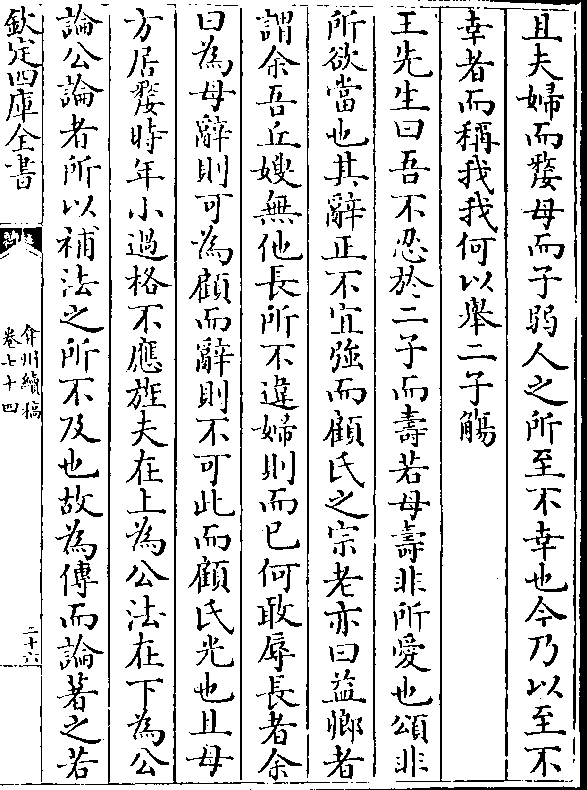 且夫婦而嫠母而子弱人之所至不幸也今乃以至不
幸者而稱我我何以舉二子觴
王先生曰吾不忍於二子而壽若母壽非所愛也頌非
所欲當也其辭正不宜強而顧氏之宗老亦曰益卿者
謂余吾丘嫂無他長所不違婦則而已何敢辱長者余
曰為母辭則可為顧而辭則不可此而顧氏光也且母
方居嫠時年小過格不應旌夫在上為公法在下為公
論公論者所以補法之所不及也故為傳而論著之若
欽定四庫全書
弇州續稿
卷七十四
二十六